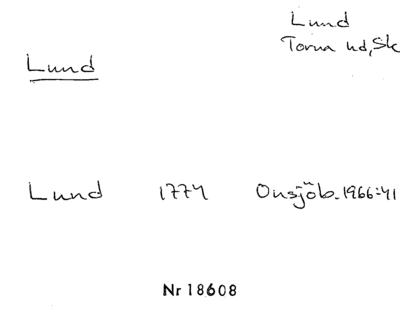 Lund
Torna hd, Sk
Lund
Lund 1774 Onsjöb. 1966:41
Nr 18608